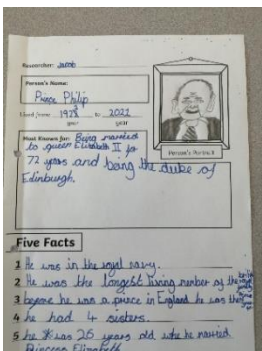 Researcher: Jacob
Person's Name:
Prince Philip
Lived from: to 2021
year year
Most Known for: Being married
to queen Elizabeth II for
72 years and being the duke of
Edinburgh.
Person's Portrait
Five Facts
1 He was in the royal navy.
2 He was the longest living member of the
3 before he was a prince in England he was
4 he had 4 sisters.
5 he was 26 years old whe he married
Princess Elizabeth